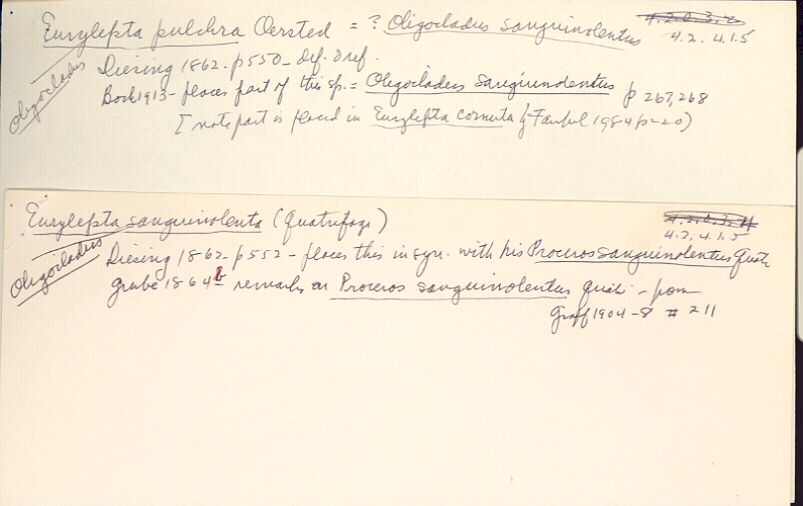 Eurylepta pulchra Oersted = ? Oligocladus sanguinolentus
4.2.0.3.
4.2.4.1.5
Oligocladus
Diesing 1862. p550 - def. & ref.
Bock 1913 - places part of this sp. = Oligocladus sanguinolentus p 267,268
[note part is placed in Eurylepta cornuta by Faubel 1984 p-20)
Eurylepta sanguinolenta (Quatrefage)
4.2.0.3.4
4.2.4.1.5
Oligocladus
Diesing 1862 - p552 - places this in syn. with his Proceros sanguinolentus Quatr
Grube 1864b remarks on Proceros sanguinolentus Quatr. - from
Graff 1904-8 # 211